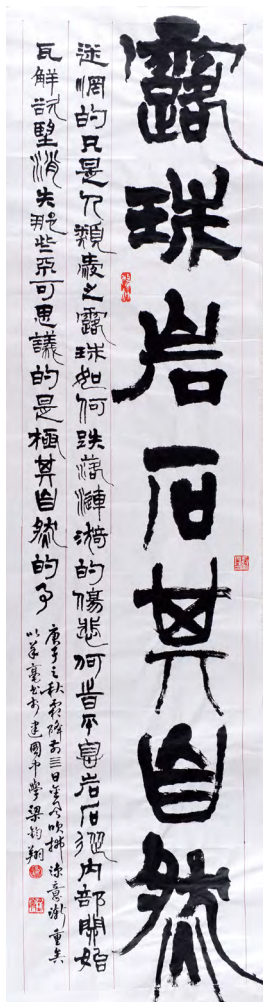 露珠岩石其自然
迷惘的只是人類露珠如何跌落漣漪的傷悲何嘗不岩石從內部開始
瓦解欲望消失那些不可思議的是極其自然的事
庚子之秋霜降前三日金風吹拂涼意漸重矣
以羊毫書於建國中學梁鈞翔